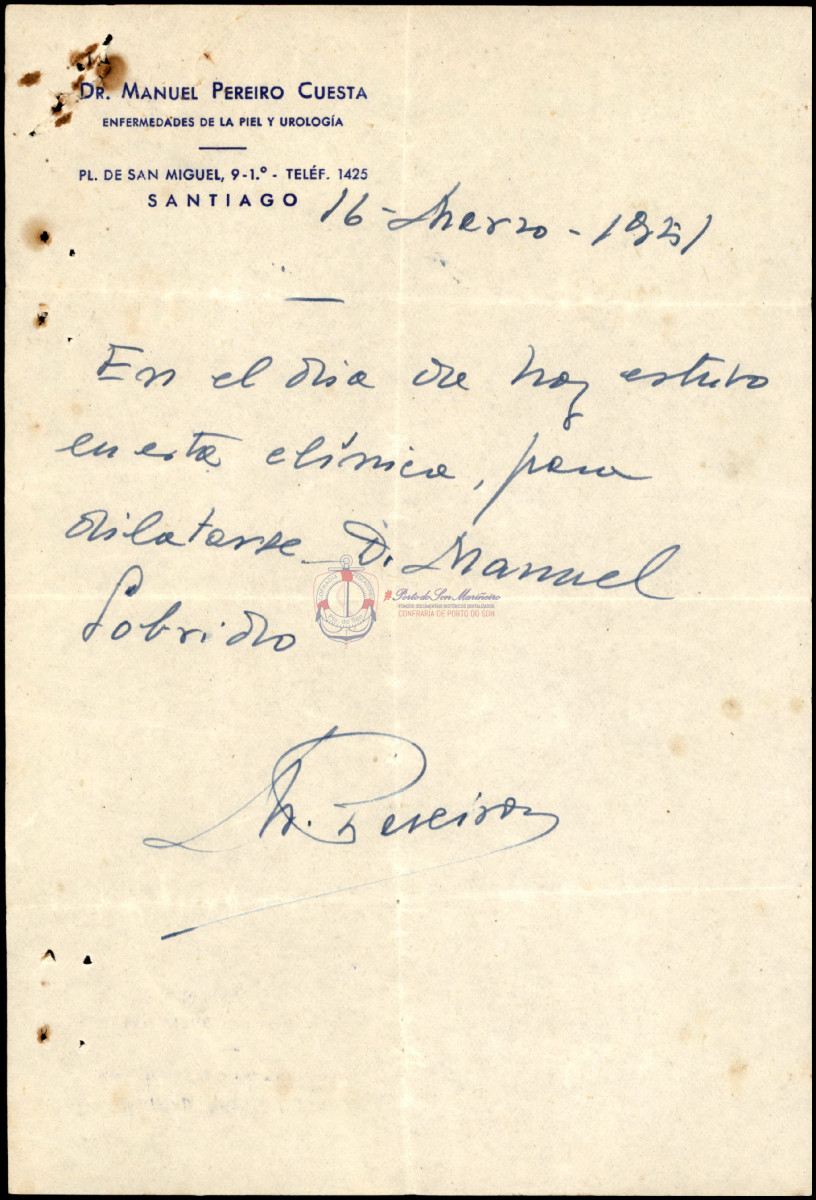 DR. MANUEL PEREIRO CUESTA
ENFERMEDADES DE LA PIEL Y UROLOGÍA
PL. DE SAN MIGUEL, 9-1.º - TELÉF. 1425
SANTIAGO
16 - Marzo - 1951
En el dia de hoy estuvo
en esta clínica, para
dilatarse D. Manuel
Sobrido
M. Pereiro
Porto do Son Mariñeiro
FONDOS DOCUMENTAIS HISTÓRICOS DIXITALIZADOS
CONFRARÍA DE PORTO DO SON